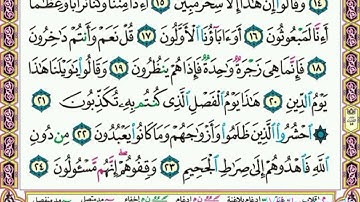 ١٤ وَقَالُوا۟ إِنْ هَٰذَآ إِلَّا سِحْرٌ مُّبِينٌ ١٥ أَءِذَا مِتْنَا وَكُنَّا تُرَابًا وَعِظَٰمًا
أَءِنَّا لَمَبْعُوثُونَ ١٦ أَوَءَابَآؤُنَا ٱلْأَوَّلُونَ ١٧ قُلْ نَعَمْ وَأَنتُمْ دَٰخِرُونَ
١٨ فَإِنَّمَا هِىَ زَجْرَةٌ وَٰحِدَةٌ فَإِذَا هُمْ يَنظُرُونَ ١٩ وَقَالُوا۟ يَٰوَيْلَنَا هَٰذَا
يَوْمُ ٱلدِّينِ ٢٠ هَٰذَا يَوْمُ ٱلْفَصْلِ ٱلَّذِى كُنتُم بِهِۦ تُكَذِّبُونَ ٢١
ٱحْشُرُوا۟ ٱلَّذِينَ ظَلَمُوا۟ وَأَزْوَٰجَهُمْ وَمَا كَانُوا۟ يَعْبُدُونَ ٢٢ مِن دُونِ
ٱللَّهِ فَٱهْدُوهُمْ إِلَىٰ صِرَٰطِ ٱلْجَحِيمِ ٢٣ وَقِفُوهُمْ إِنَّهُم مَّسْـُٔولُونَ ٢٤